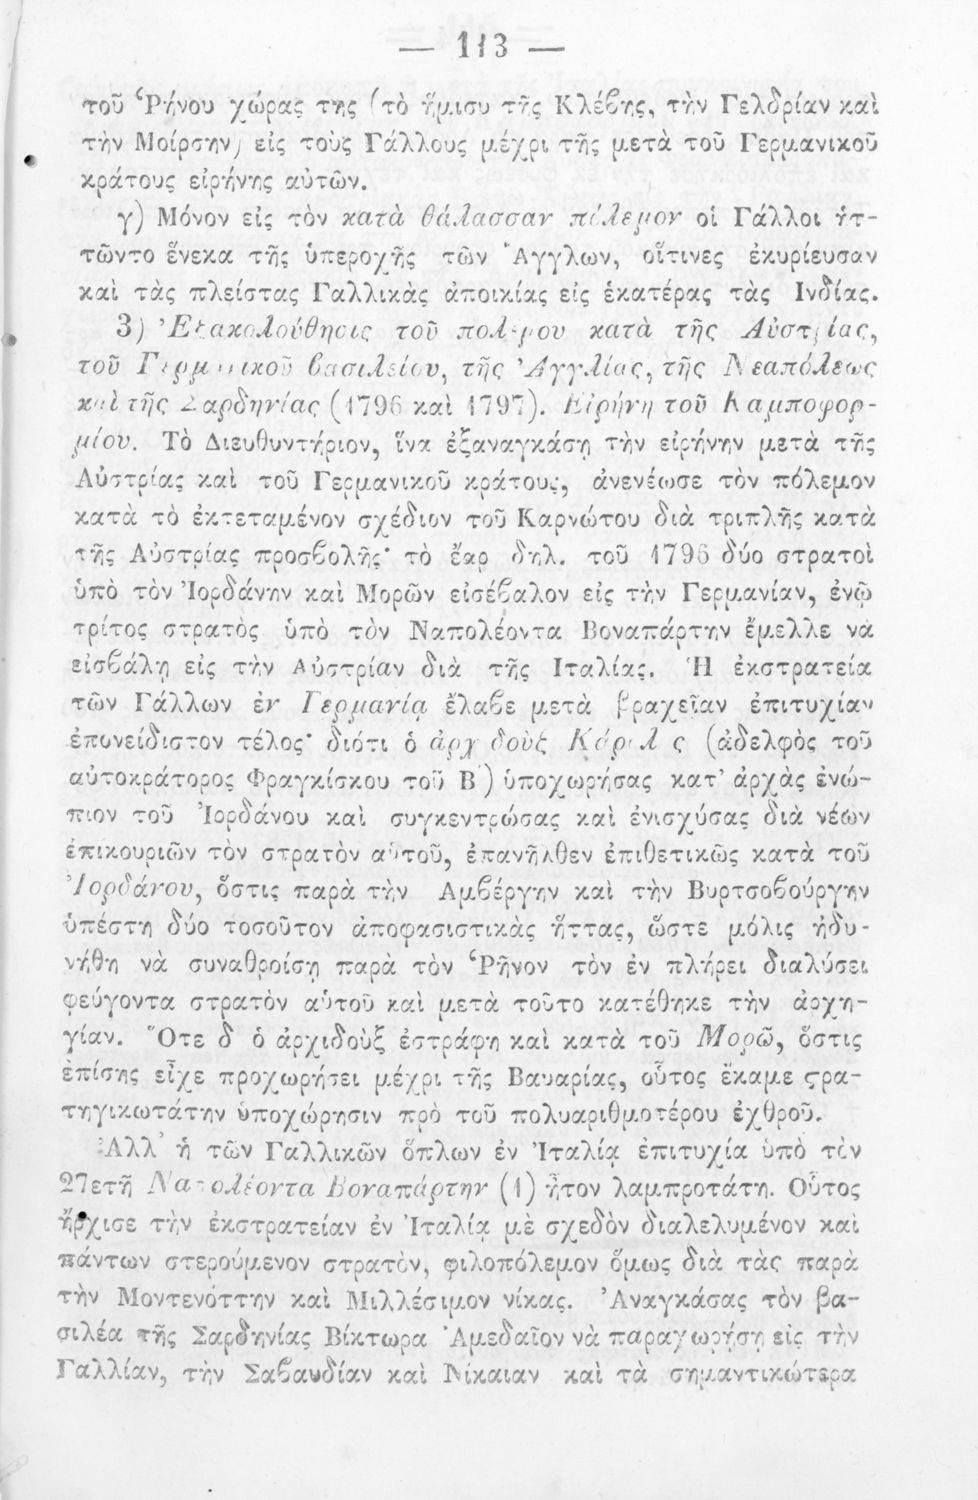 — 113 —
τοῦ Ῥήνου χώρας της (τὸ ἥμισυ τῆς Κλέβης, τὴν Γελδρίαν καὶ
τὴν Μοίρσην) εἰς τοὺς Γάλλους μέχρι τῆς μετὰ τοῦ Γερμανικοῦ
κράτους εἰρήνης αὐτῶν.
γ) Μόνον εἰς τὸν κατὰ θάλασσαν πόλεμον οἱ Γάλλοι ἡτ-
τῶντο ἕνεκα τῆς ὑπεροχῆς τῶν Ἄγγλων, οἵτινες ἐκυρίευσαν
καὶ τὰς πλείστας Γαλλικὰς ἀποικίας εἰς ἑκατέρας τὰς Ινδίας.
3) Ἐξακολούθησις τοῦ πολέμου κατὰ τῆς Αὐστρίας,
τοῦ Γερμανικοῦ βασιλείου, τῆς Ἀγγλίας, τῆς Νεαπόλεως
καὶ τῆς Σαρδηνίας (1796 καὶ 1797). Εἰρήνη τοῦ Καμποφορ-
μίου. Τὸ Διευθυντήριον, ἵνα ἐξαναγκάσῃ τὴν εἰρήνην μετὰ τῆς
Αὐστρίας καὶ τοῦ Γερμανικοῦ κράτους, ἀνενέωσε τὸν πόλεμον
κατὰ τὸ ἐκτεταμένον σχέδιον τοῦ Καρνώτου διὰ τριπλῆς κατὰ
τῆς Αὐστρίας προσβολῆς· τὸ ἔαρ δηλ. τοῦ 1796 δύο στρατοὶ
ὑπὸ τὸν Ἰορδάνην καὶ Μορῶν εἰσέβαλον εἰς τὴν Γερμανίαν, ἐνῷ
τρίτος στρατὸς ὑπὸ τὸν Ναπολέοντα Βοναπάρτην ἔμελλε νὰ
εἰσβάλῃ εἰς τὴν Αὐστρίαν διὰ τῆς Ιταλίας. Ἡ ἐκστρατεία
τῶν Γάλλων ἐν Γερμανίᾳ ἔλαβε μετὰ βραχεῖαν ἐπιτυχίαν
ἐπονείδιστον τέλος· διότι ὁ ἀρχιδοὺξ Κάρολος (ἀδελφὸς τοῦ
αὐτοκράτορος Φραγκίσκου τοῦ Β΄) ὑποχωρήσας κατ' ἀρχὰς ἐνώ-
πιον τοῦ Ἰορδάνου καὶ συγκεντρώσας καὶ ἐνισχύσας διὰ νέων
ἐπικουριῶν τὸν στρατὸν αὑτοῦ, ἐπανῆλθεν ἐπιθετικῶς κατὰ τοῦ
Ἰορδάνου, ὅστις παρὰ τὴν Αμβέργην καὶ τὴν Βυρτσοβούργην
ὑπέστη δύο τοσοῦτον ἀποφασιστικὰς ἥττας, ὥστε μόλις ἠδυ-
νήθη νὰ συναθροίσῃ παρὰ τὸν Ῥῆνον τὸν ἐν πλήρει διαλύσει
φεύγοντα στρατὸν αὑτοῦ καὶ μετὰ τοῦτο κατέθηκε τὴν ἀρχη-
γίαν. Ὅτε δ ὁ ἀρχιδοὺξ ἐστράφη καὶ κατὰ τοῦ Μορῶ, ὅστις
ἐπίσης εἶχε προχωρήσει μέχρι τῆς Βαυαρίας, οὗτος ἔκαμε ϛρα-
τηγικωτάτην ὑποχώρησιν πρὸ τοῦ πολυαριθμοτέρου ἐχθροῦ.
Ἀλλ' ἡ τῶν Γαλλικῶν ὅπλων ἐν Ἰταλίᾳ ἐπιτυχία ὑπὸ τὸν
27ετῆ Ναπολέοντα Βοναπάρτην (1) ἦτον λαμπροτάτη. Οὗτος
ἤρχισε τὴν ἐκστρατείαν ἐν Ἰταλίᾳ μὲ σχεδὸν διαλελυμένον καὶ
πάντων στερούμενον στρατὸν, φιλοπόλεμον ὅμως διὰ τὰς παρὰ
τὴν Μοντενόττην καὶ Μιλλέσιμον νίκας. Ἀναγκάσας τὸν βα-
σιλέα τῆς Σαρδηνίας Βίκτωρα Ἀμεδαῖον νὰ παραχωρήσῃ εἰς τὴν
Γαλλίαν, τὴν Σαβαυδίαν καὶ Νίκαιαν καὶ τὰ σημαντικώτερα